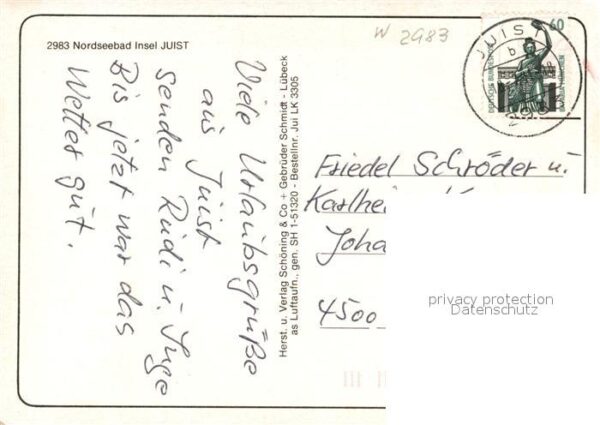 W 2983
2983 Nordseebad Insel JUIST
60
JUIST
b
2983
Viele Urlaubsgrüße
aus Juist
senden Rudi u. Inge
Bis jetzt war das
Wetter gut.
Herst. u. Verlag Schöning & Co + Gebrüder Schmidt - Lübeck
as Luftaufn., gen. SH 1-51320 - Bestellnr. Jui LK 3305
Friedel Schröder u.
Karlhei
Joha
4500
privacy protection
Datenschutz